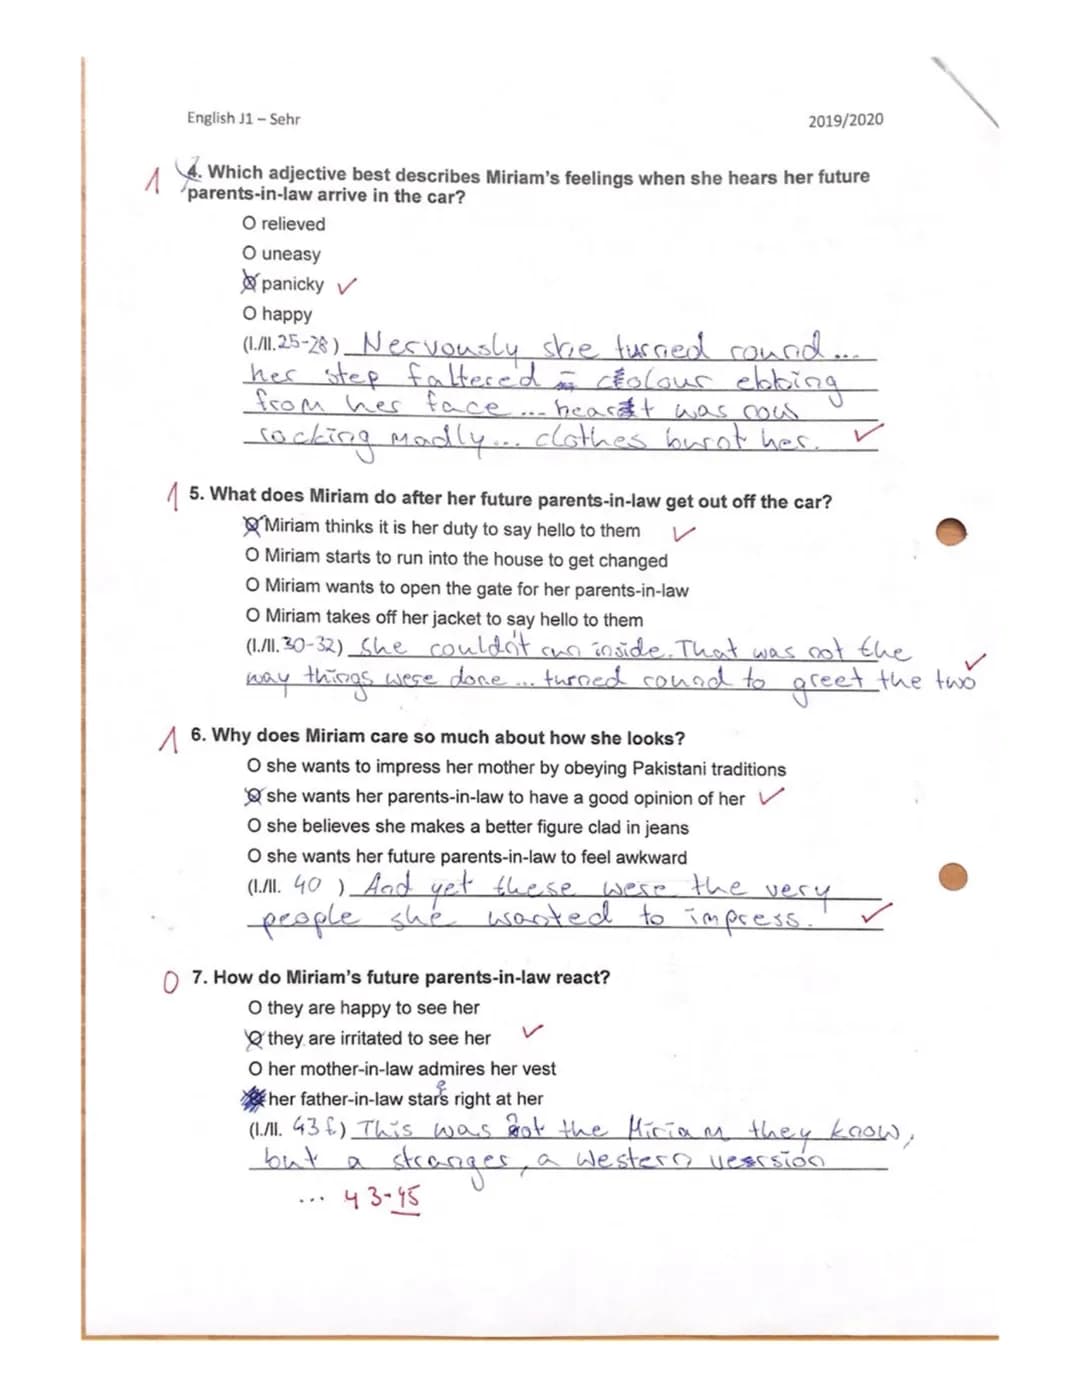 English J1 – Sehr
2019/2020
1 4. Which adjective best describes Miriam's feelings when she hears her future
parents-in-law arrive in the car?
O relieved
O uneasy
O panicky ✓
O happy
(l./ll. 25-28) Nervously she turned round...
her step faltered - colour ebbing
from her face ... heart was now
rocking madly... clothes burnt her. ✓
1 5. What does Miriam do after her future parents-in-law get out off the car?
O Miriam thinks it is her duty to say hello to them ✓
O Miriam starts to run into the house to get changed
O Miriam wants to open the gate for her parents-in-law
O Miriam takes off her jacket to say hello to them
(l./ll. 30-32) She couldn't run inside. That was not the
way things were done ... turned round to greet the two ✓
1 6. Why does Miriam care so much about how she looks?
O she wants to impress her mother by obeying Pakistani traditions
O she wants her parents-in-law to have a good opinion of her ✓
O she believes she makes a better figure clad in jeans
O she wants her future parents-in-law to feel awkward
(l./ll. 40 ) And yet these were the very
people she wanted to impress. ✓
0 7. How do Miriam's future parents-in-law react?
O they are happy to see her
O they are irritated to see her ✓
O her mother-in-law admires her vest
O her father-in-law stares right at her
(l./ll. 43 f.) This was not the Miriam they know,
but a stranger, a Western version
... 43-45